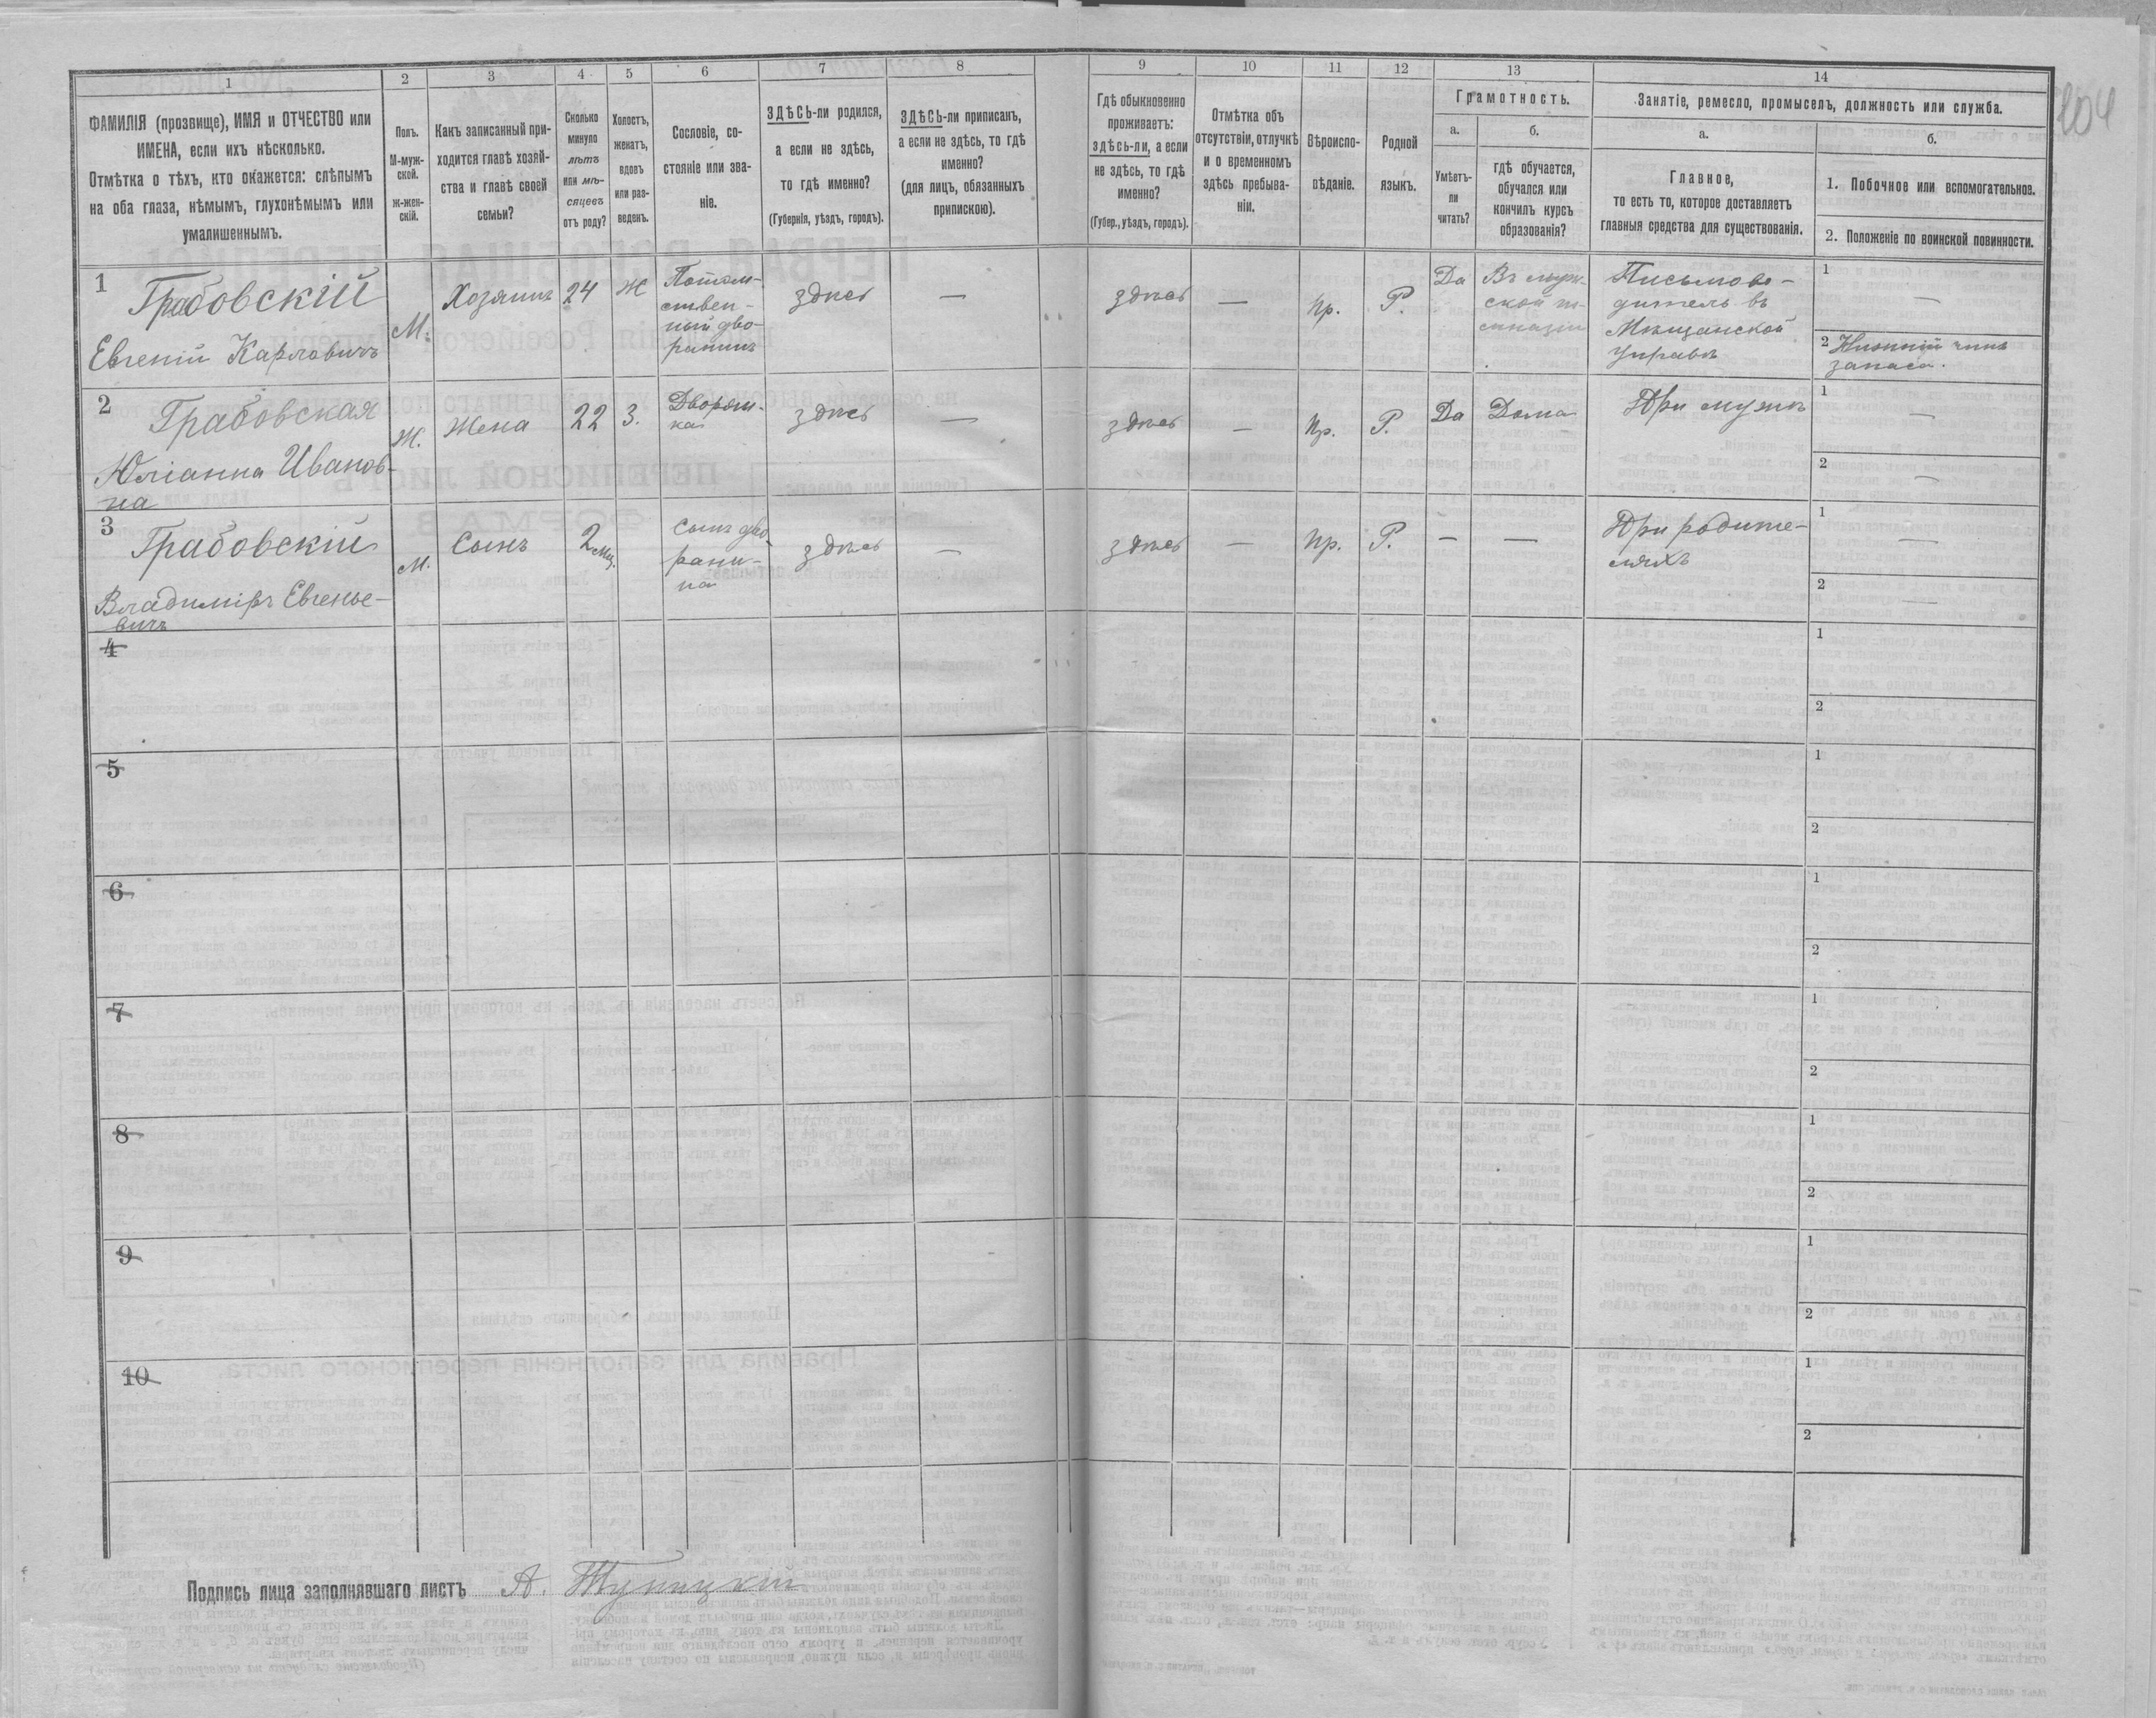 104
1 2 3 4 5 6 7 8 9 10 11 12 13 14
ФАМИЛІЯ (прозвище), ИМЯ и ОТЧЕСТВО или
ИМЕНА, если ихъ нѣсколько.
Отмѣтка о тѣхъ, кто окажется: слѣпымъ
на оба глаза, нѣмымъ, глухонѣмымъ или
умалишеннымъ.
Полъ.
М-муж-
ской.
ж-жен-
скій.
Какъ записанный при-
ходится главѣ хозяй-
ства и главѣ своей
семьи?
Сколько
минуло
лѣтъ
или мѣ-
сяцевъ
отъ роду?
Холостъ,
женатъ,
вдовъ
или раз-
веденъ.
Сословіе, со-
стояніе или зва-
ніе.
ЗДѢСЬ-ли родился,
а если не здѣсь,
то гдѣ именно?
(Губернія, уѣздъ, городъ).
ЗДѢСЬ-ли приписанъ,
а если не здѣсь, то гдѣ
именно?
(для лицъ, обязанныхъ
припискою).
Гдѣ обыкновенно
проживаетъ:
здѣсь-ли, а если
не здѣсь, то гдѣ
именно?
(Губер., уѣздъ, городъ).
Отмѣтка объ
отсутствіи, отлучкѣ
и о временномъ
здѣсь пребыва-
ніи.
Вѣроиспо-
вѣданіе.
Родной
языкъ.
Грамотность.
а.
Умѣетъ-
ли
читать?
б.
гдѣ обучается,
обучался или
кончилъ курсъ
образованія?
Занятіе, ремесло, промыселъ, должность или служба.
а.
Главное,
то есть то, которое доставляетъ
главныя средства для существованія.
б.
1. Побочное или вспомогательное.
2. Положеніе по воинской повинности.
1
Грабовскій
Евгеній Карловичъ
М.
Хозяинъ
24
Ж
Потом-
ствен-
ный дво-
рянинъ
здѣсь
—
здѣсь
—
Пр.
Р.
Да
Письмово-
дитель въ
Мѣщанской
Управѣ
1
—
2 Нижній чинъ
запаса.
2
Грабовская
Юліанна Иванов-
на
Ж.
Жена
22
З.
Дворян-
ка
здѣсь
—
здѣсь
—
Пр.
Р.
Да
Дома
При мужѣ
1
—
2
—
3
Грабовскій
Владиміръ Евгенье-
вичъ
М.
Сынъ
2 мц.
Сынъ дво-
ряни-
на
здѣсь
—
здѣсь
—
Пр.
Р.
—
—
При родите-
ляхъ
1
—
2
—
4
1
2
5
1
2
6
1
2
7
1
2
8
1
2
9
1
2
10
1
2
Подпись лица заполнявшаго листъ А.